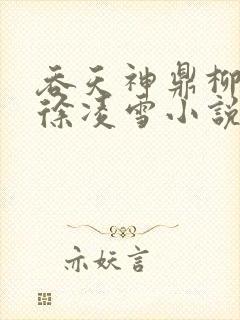 吞天神鼎柳
徐凌雪小說
亦妖言